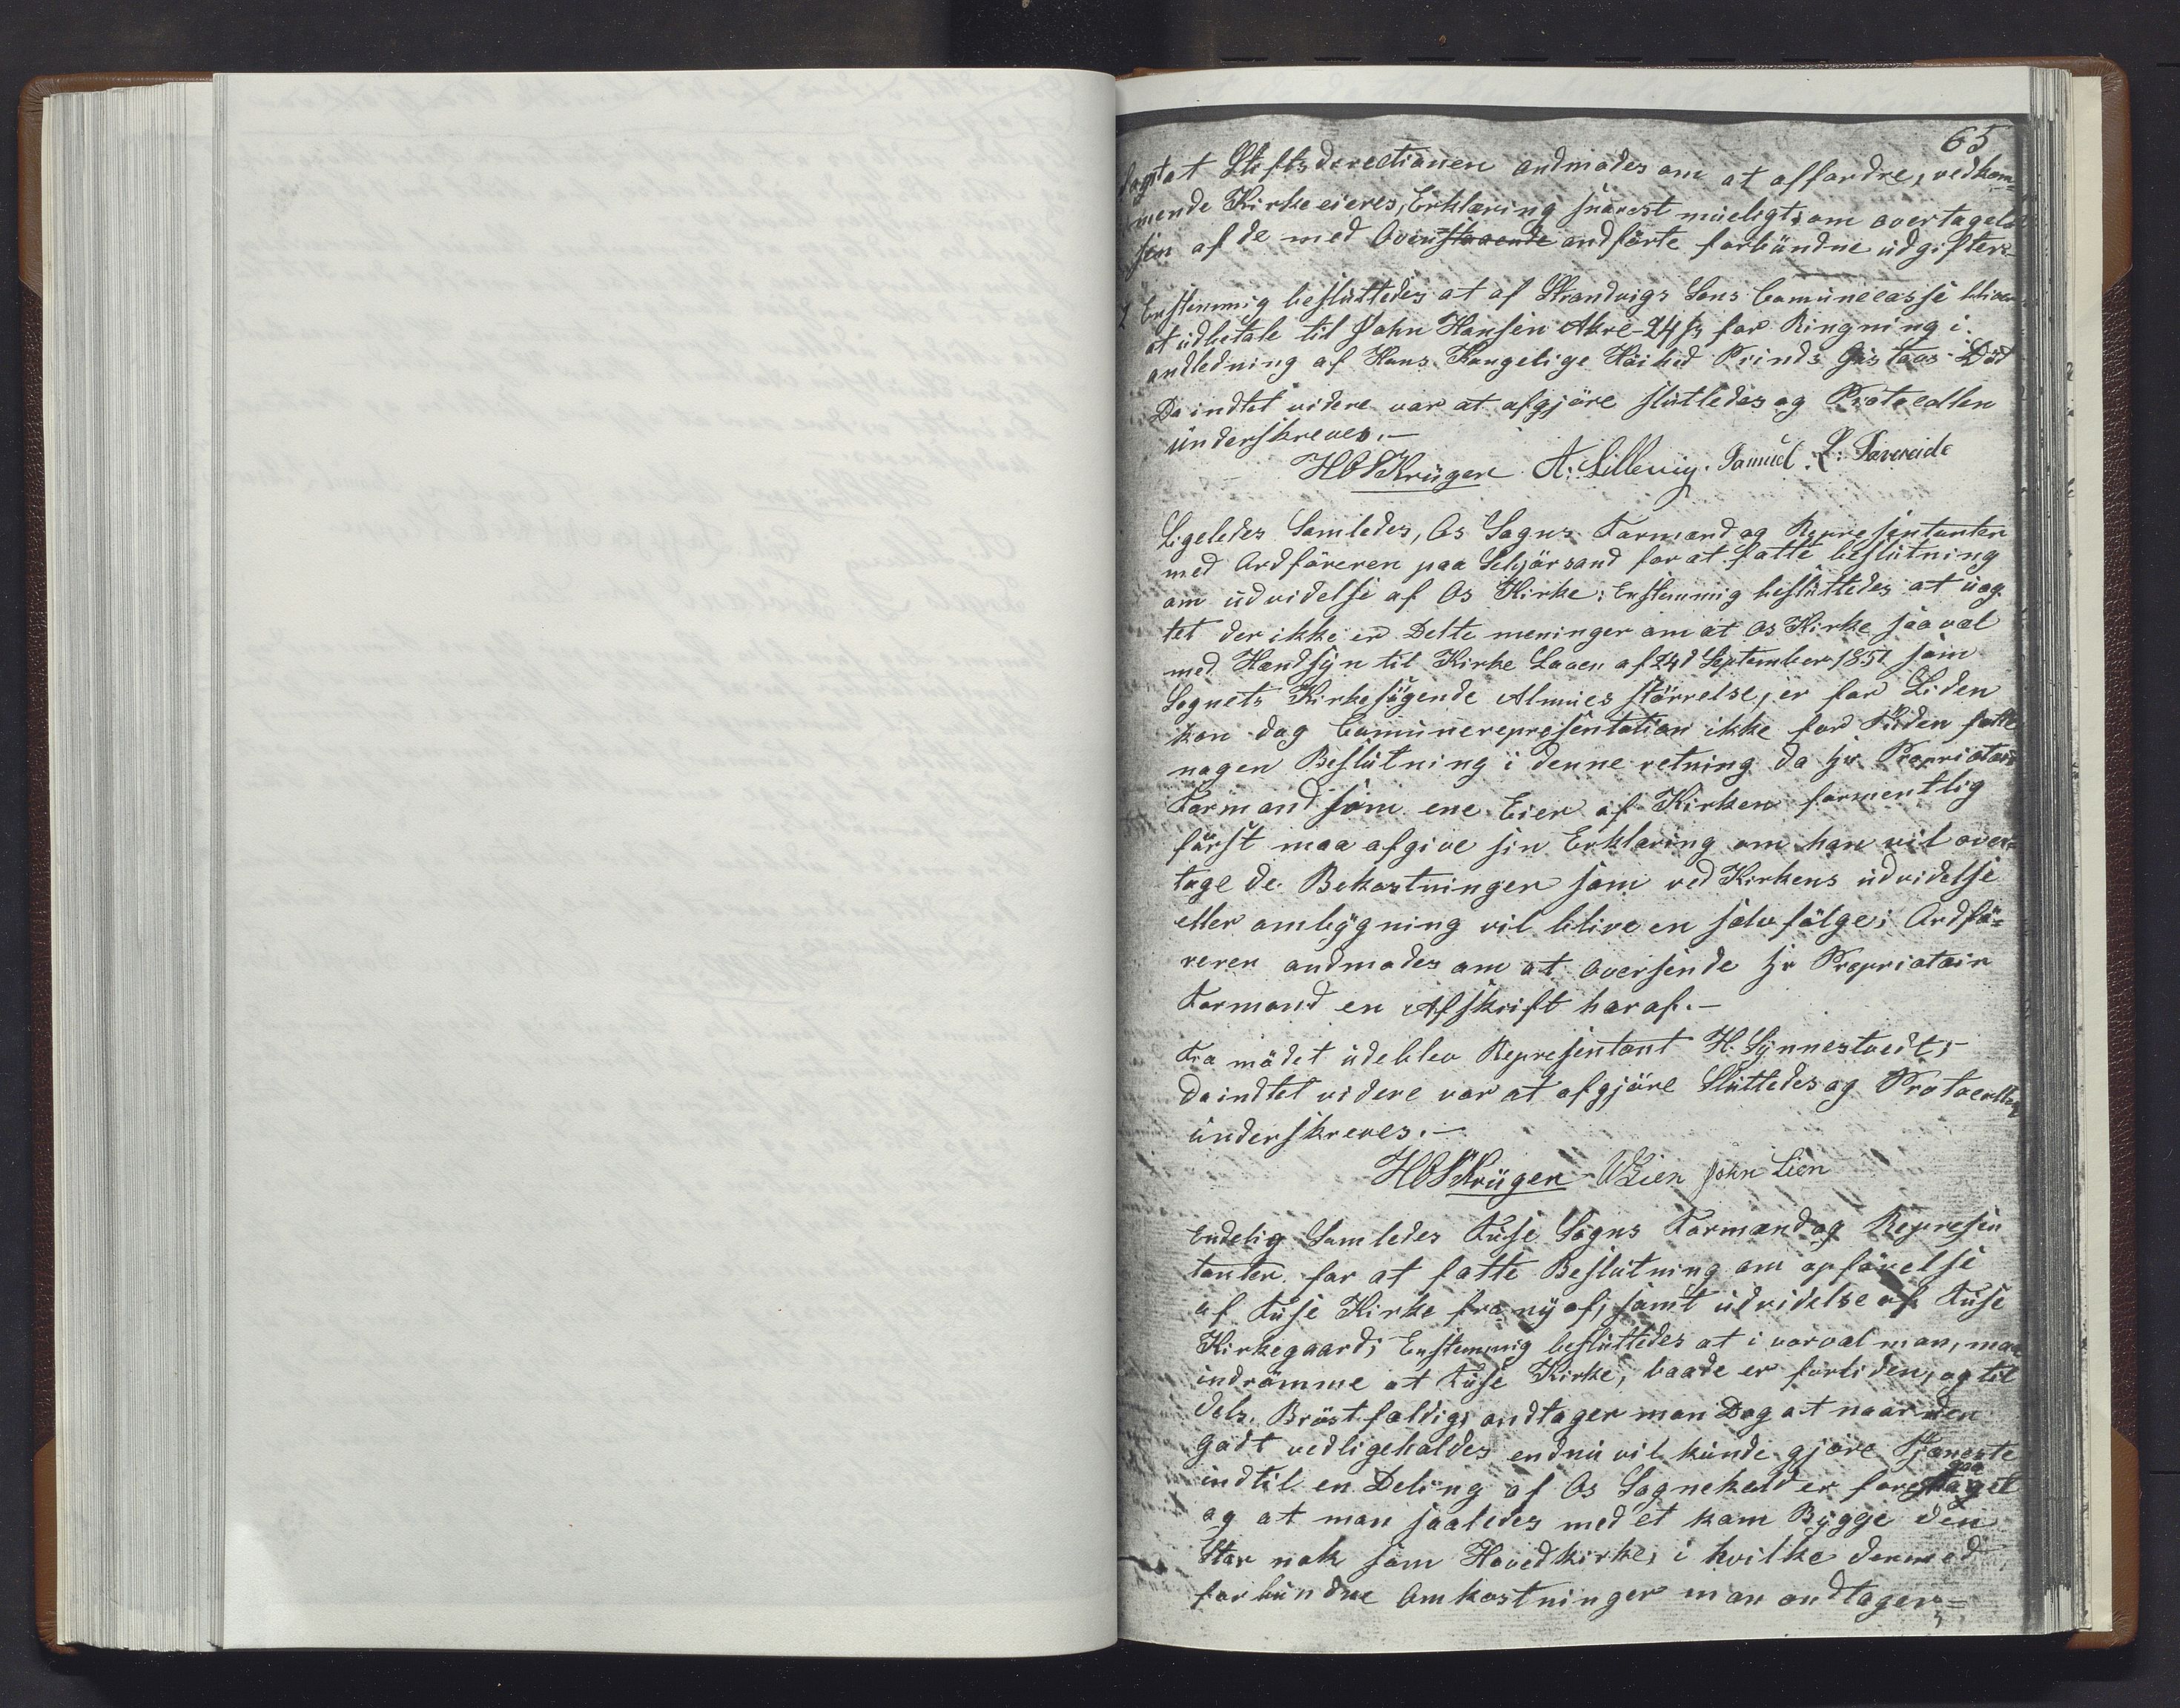 65
sagt at Stiftsderectionen andmodes om at affordre, vedkom-
mende Kirkeeieres, Erklæring snarest mueligt, om overtagel-
sen af de med Ovenstaaende andförte forbundne udgifter.-
2 Enstemmig besluttedes at af Strandvigs Sons Comunecasse bliver
at udbetale til John Hansen Akre - 24 ß for Ringning i
andledning af Hans Kongelige Höihed Prinds Gustavs Död
Da indtet videre var at afgjöre sluttedes og Protocollen
underskreves.-
HOSKrüger A: Lillevig. Samuel. L:
Ligeledes Samledes, Os Sogns Formænd og Representanter
med Ordföreren paa Schjörsand for at fatte beslutning
om udvidelse af Os Kirke: Enstemmig besluttedes at uag-
tet der ikke er Delte meninger om at Os Kirke saavæl
med Hændsyn til Kirke Loven af 24d September 1851 som
Sognets Kirkesögende Almues störrelse, er for Liden
kan dog Comunerepresentation ikke for Tiden fatte
nogen Beslutning i denne retning da Hr Propriotær
Formand som ene Eier af Kirken formentlig
först maa afgive sin Erklæring om han vil over-
tage de Bekostninger som ved Kirkens udvidelse
eller ombygning vil blive en sælvfölge; Ordfö-
reren andmodes om at Oversende Hr Propriotær
Formand en Afskrift heraf.-
Fra mödet udeblev Representant H. Synnestvedt;-
Da indtet videre var at afgjöre Sluttedes og Protocollen
underskreves.-
HOSKrüger John Lien
Endelig Samledes Fuse Sogns Formænd og Represen
tanter for at fatte Beslutning om opförelse
af Fuse Kirke fra ny af, samt udvidelse af Fuse
Kirkegaard; Enstemmig besluttedes at i vorvæl man, maa
indrömme at Fuse Kirke, baade er forliden, og til
dels. Bröstfældig; andtager man Dog at naar den
Godt vedligeholdes endnu vil kunde gjöre Tjæneste
indtil en Deling af Os Sognekald er foregaaet
og at man saaledes med et kam Bygge den
Stor nok som Hovedkirke, i hvilke dermed
forbundne Omkostninger man andtager,=